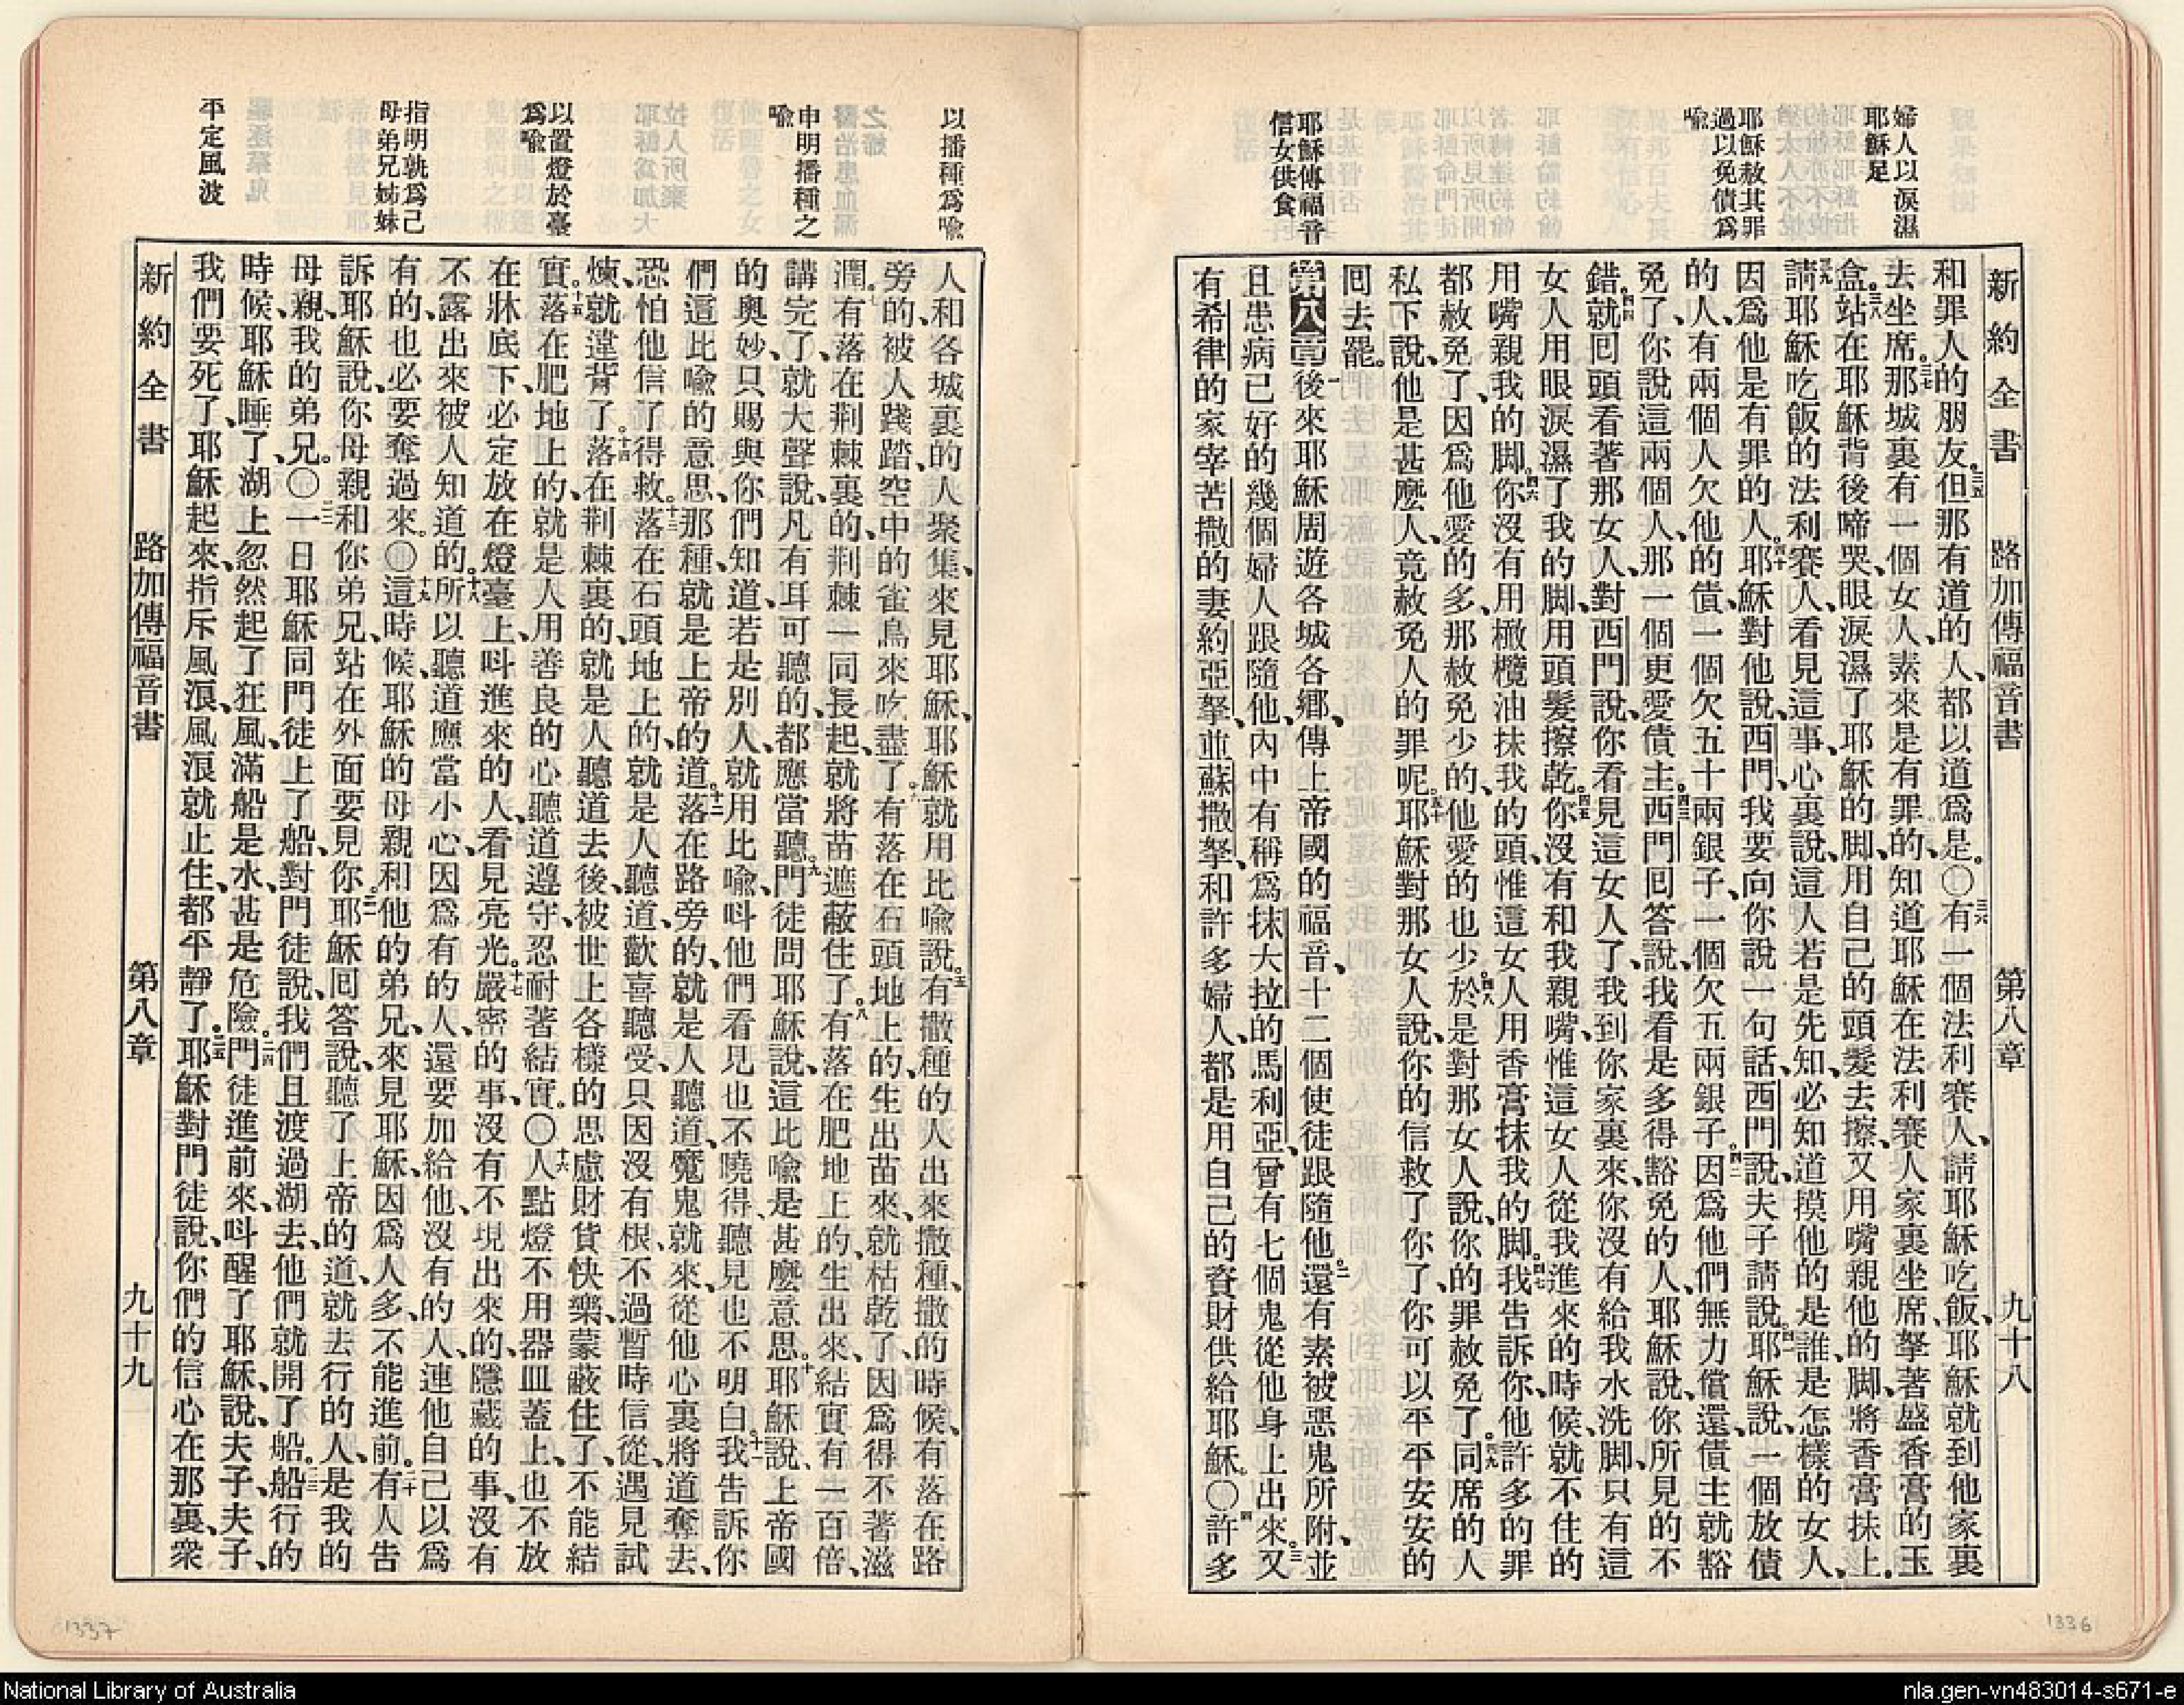 婦人以淚濕
耶穌足
耶穌赦其罪
過以免債爲
喩
耶穌傳福音
信女供食
新約全書 路加傳福音書 第八章 九十八
和罪人的朋友。三五但那有道的人、都以道爲是。〇三六有一個法利賽人、請耶穌吃飯、耶穌就到他家裏
去坐席。三七那城裏有一個女人、素來是有罪的、知道耶穌在法利賽人家裏坐席、拏著盛香膏的玉
盒。三八站在耶穌背後啼哭、眼淚濕了耶穌的脚、用自己的頭髮去擦、又用嘴親他的脚、將香膏抹上。
三九請耶穌吃飯的法利賽人、看見這事、心裏說、這人若是先知、必知道摸他的是誰、是怎樣的女人、
因爲他是有罪的人。四十耶穌對他說、西門、我要向你說一句話、西門說、夫子請說。四一耶穌說、一個放債
的人、有兩個人欠他的債、一個欠五十兩銀子、一個欠五兩銀子。四二因爲他們無力償還、債主就豁
免了、你說這兩個人、那一個更愛債主。四三西門回答說、我看是多得豁免的人、耶穌說、你所見的不
錯。四四就回頭看著那女人、對西門說、你看見這女人了、我到你家裏來、你沒有給我水洗脚、只有這
女人用眼淚濕了我的脚、用頭髮擦乾。四五你沒有和我親嘴、惟這女人從我進來的時候、就不住的
用嘴親我的脚。四六你沒有用橄欖油抹我的頭、惟這女人用香膏抹我的脚。四七我告訴你、他許多的罪
都赦免了、因爲他愛的多、那赦免少的、他愛的也少。四八於是對那女人說、你的罪赦免了。四九同席的人
私下說、他是甚麼人、竟赦免人的罪呢。五十耶穌對那女人說、你的信救了你了、你可以平平安安的
回去罷。
第八章 一後來耶穌周遊各城各鄉、傳上帝國的福音、十二個使徒跟隨他。二還有素被惡鬼所附、並
且患病已好的幾個婦人跟隨他、內中有稱爲抹大拉的馬利亞、曾有七個鬼從他身上出來。三又
有希律的家宰苦撒的妻約亞拏、並蘇撒拏、和許多婦人、都是用自己的資財供給耶穌。〇四許多
1336
以播種爲喩
申明播種之
喩
以置燈於臺
爲喩
指明孰爲己
母弟兄姊妹
平定風波
人和各城裏的人聚集、來見耶穌、耶穌就用比喩說。五有撒種的人出來撒種、撒的時候、有落在路
旁的、被人踐踏、空中的雀鳥來吃盡了。六有落在石頭地上的、生出苗來、就枯乾了、因爲得不著滋
潤。七有落在荆棘裏的、荆棘一同長起、就將苗遮蔽住了。八有落在肥地上的、生出來、結實有一百倍、
講完了、就大聲說、凡有耳可聽的、都應當聽。九門徒問耶穌說、這比喩是甚麼意思。十耶穌說、上帝國
的奧妙、只賜與你們知道、若是別人、就用比喩、呌他們看見也不曉得、聽見也不明白。十一我告訴你
們這比喩的意思、那種、就是上帝的道。十二落在路旁的、就是人聽道、魔鬼就來、從他心裏將道奪去、
恐怕他信了得救。十三落在石頭地上的、就是人聽道、歡喜聽受、只因沒有根、不過暫時信從、遇見試
煉、就違背了。十四落在荆棘裏的、就是人聽道去後、被世上各樣的思慮財貨快樂、蒙蔽住了、不能結
實。十五落在肥地上的、就是人用善良的心聽道遵守、忍耐著結實。〇十六人點燈不用器皿蓋上、也不放
在牀底下、必定放在燈臺上、呌進來的人、看見亮光。十七嚴密的事、沒有不現出來的、隱藏的事、沒有
不露出來、被人知道的。十八所以聽道應當小心、因爲有的人、還要加給他、沒有的人、連他自己以爲
有的、也必要奪過來。〇十九這時候、耶穌的母親和他的弟兄、來見耶穌、因爲人多、不能進前。二十有人告
訴耶穌說、你母親和你弟兄、站在外面要見你。二一耶穌回答說、聽了上帝的道、就去行的人、是我的
母親、我的弟兄。〇二二一日耶穌同門徒上了船、對門徒說、我們且渡過湖去、他們就開了船。二三船行的
時候、耶穌睡了、湖上忽然起了狂風、滿船是水、甚是危險。二四門徒進前來、呌醒了耶穌、說、夫子、夫子、
我們要死了、耶穌起來、指斥風浪、風浪就止住、都平靜了。二五耶穌對門徒說、你們的信心在那裏、衆
新約全書 路加傳福音書 第八章 九十九
1337
National Library of Australia
nla.gen-vn483014-s671-e